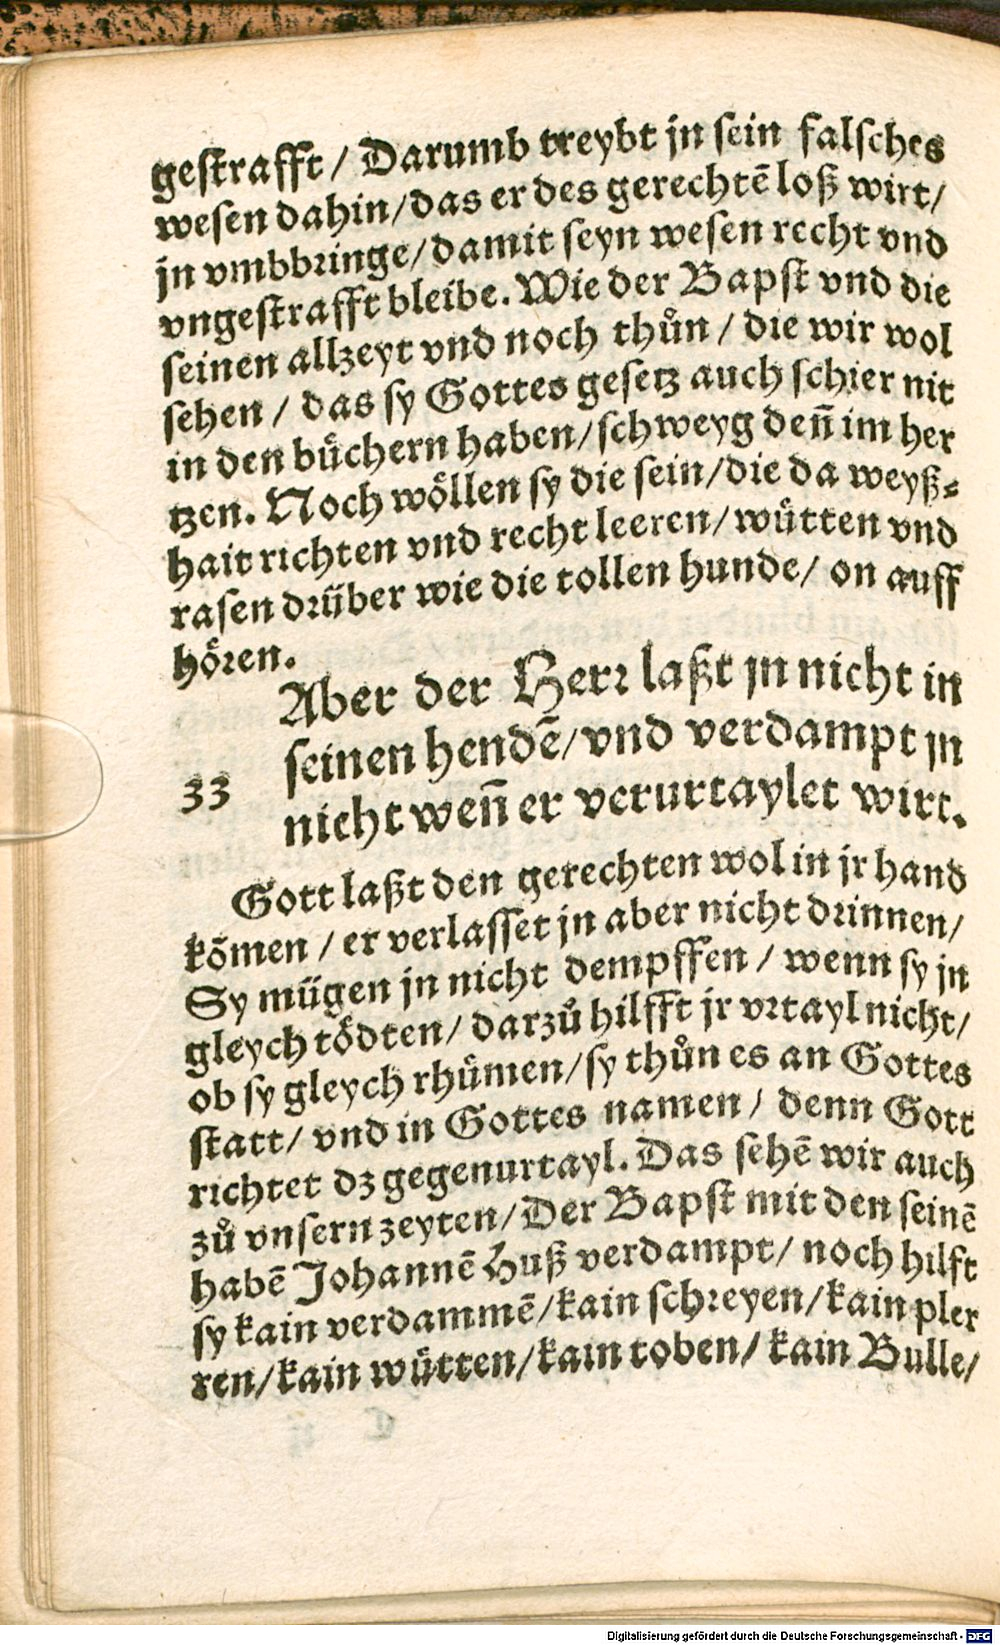 gestrafft / Darumb treybt jn sein falsches
wesen dahin/das er des gerechtē loß wirt/
jn vmbbringe/damit seyn wesen recht vnd
vngestrafft bleibe. Wie der Bapst vnd die
seinen allzeyt vnd noch thůn / die wir wol
sehen / das sy Gottes gesetz auch schier nit
in den bůchern haben/schweyg deñ im her
tzen. Noch wöllen sy die sein/die da weyß⸗
hait richten vnd recht leeren/wůtten vnd
rasen drüber wie die tollen hunde/ on auff
hören.
Aber der Herr laßt jn nicht in
seinen hendē/vnd verdampt jn
33 nicht weñ er verurtaylet wirt.
Gott laßt den gerechten wol in jr hand
kōmen / er verlasset jn aber nicht drinnen/
Sy mügen jn nicht dempffen / wenn sy jn
gleych tödten/ darzů hilfft jr vrtayl nicht/
ob sy gleych rhůmen/sy thůn es an Gottes
statt/ vnd in Gottes namen/ denn Gott
richtet dz gegenurtayl. Das sehē wir auch
zů vnsern zeyten/Der Bapst mit den seinē
habē Johannē Huß verdampt/ noch hilft
sy kain verdammē/kain schreyen/kain pler
ren/kain wůtten/kain toben/ kain Bulle/
Digitalisierung gefördert durch die Deutsche Forschungsgemeinschaft - DFG